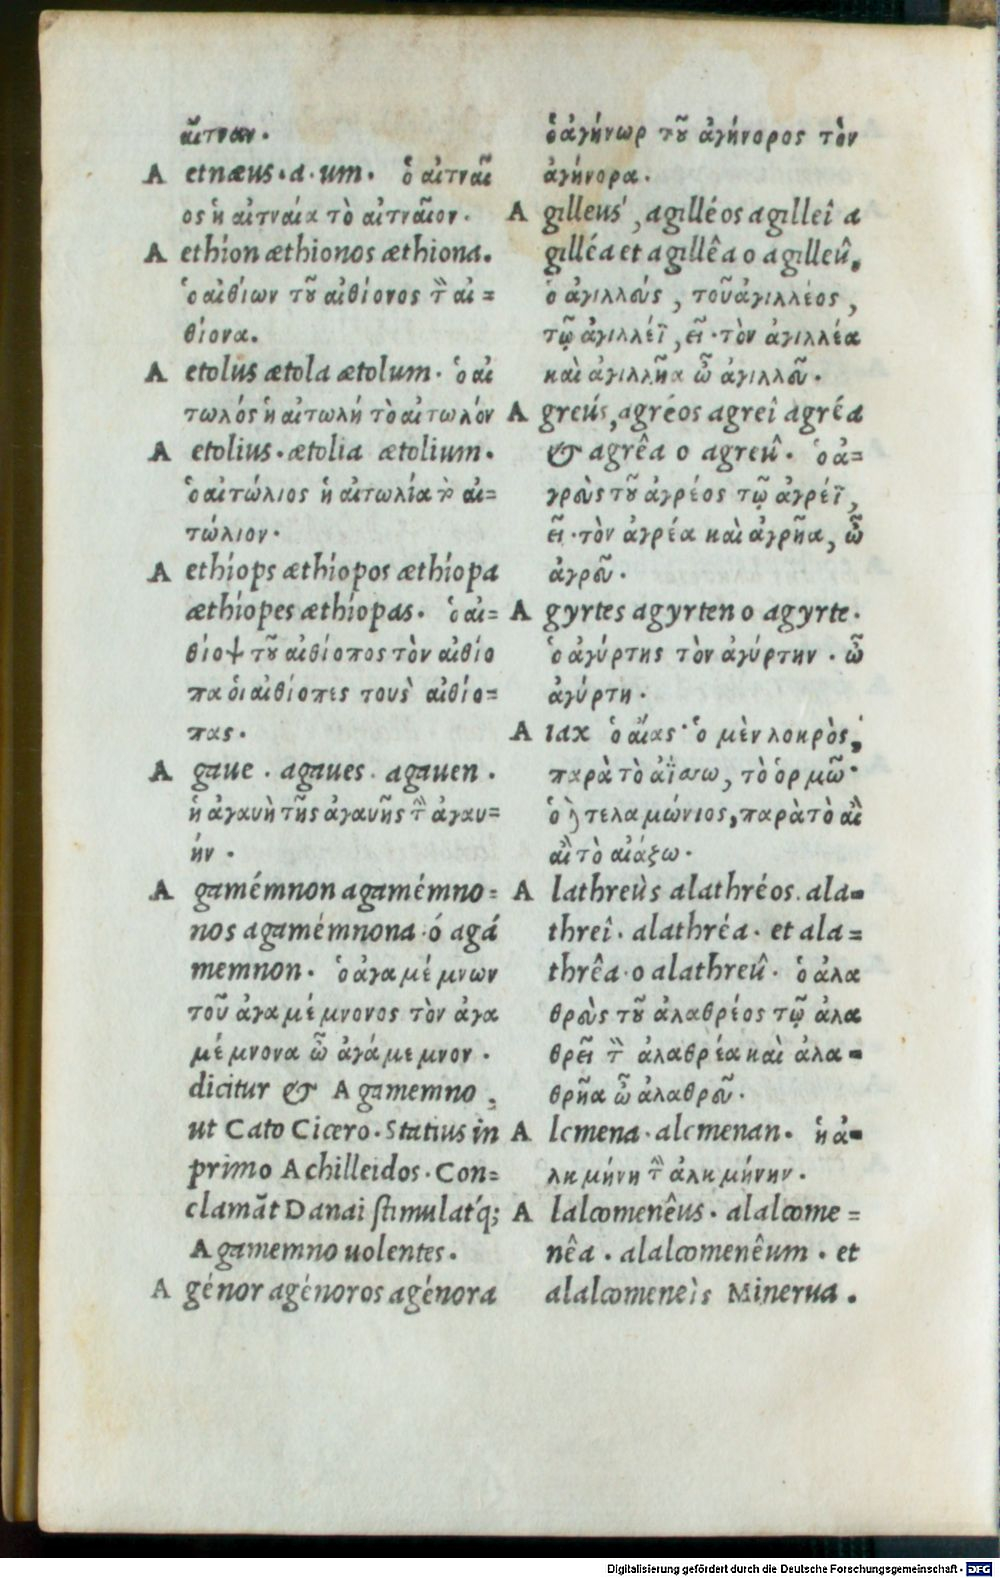 αἴτναν.
A etnæus.a.um. ὁ αἰτναῖ
ος ἡ αἰτναία τὸ αἰτναῖον.
A ethíon æthíonos æthíona.
ὁ αἰθίων τοῦ αἰθίονος τὸν αἰ=
θίονα.
A etolus ætola ætolum. ὁ αἰ
τωλός ἡ αἰτωλή τὸ αἰτωλόν
A etolius.ætolia ætolium.
ὁ αἰτώλιος ἡ αἰτωλία τὸ αἰ=
τώλιον.
A ethíops æthíopos æthíopa
æthíopes æthíopas. ὁ αἰ=
θίοψ τοῦ αἰθίοπος τὸν αἰθίο
πα ὁι αἰθίοπες τοὺς αἰθίο=
πας.
A gaue . agaues . agauen .
ἡ ἀγαυὴ τῆς ἀγαυῆς τὴν ἀγαυ=
ήν .
A gamémnon agamémno=
nos agamémnona.ó agá
memnon. ὁ ἀγαμέμνων
τοῦ ἀγαμέμνονος τὸν ἀγα
μέμνονα ὦ ἀγάμεμνον .
dicitur & A gamemno ,
ut Cato Cicero.Statius in
primo Achilleidos.Con=
clamãt Danai stimulatq́;
Agamemno uolentes.
A génor agénoros agénora
ὁ ἀγήνωρ τοῦ ἀγήνορος τὸν
ἀγήνορα.
A gilleus , agilléos agilleî a
gilléa et agillêa o agilleû,
ὁ ἀγιλλεύς , τοῦ ἀγιλλέος ,
τῷ ἀγιλλέϊ , εῖ .τὸν ἀγιλλέα
καὶ ἀγιλλῆα ὦ ἀγιλλεῦ.
A greús, agréos agreî agréa
& agrêa o agreû. ὁ ἀ=
γρεὺς τοῦ ἀγρέος τῷ ἀγρέϊ ,
εῖ .τὸν ἀγρέα καὶ ἀγρῆα, ὦ
ἀγρεῦ.
A gyrtes agyrten o agyrte.
ὁ ἀγύρτης τὸν ἀγύρτην . ὦ
ἀγύρτη .
A iax ὁ αἴας· ὁ μὲν λοκρὸς,
παρὰ τὸ ἀΐσσω, τὸ ὁρμῶ·
ὁ δὲ τελαμώνιος, παρὰ τὸ αἲ
αἲ τὸ αἰάζω.
A lathreùs alathréos.ala=
threî. alathréa. et ala=
thrêa.o alathreû. ὁ ἀλα
θρεὺς τοῦ ἀλαθρέος τῷ ἀλα
θρεῖ τὸν ἀλαθρέα καὶ ἀλα=
θρῆα ὦ ἀλαθρεῦ.
A lcmena.alcmenan. ἡ ἀ=
λκμήνη τὴν ἀλκμήνην .
A lalcomenêus. alalcome=
nêa . alalcomenêum . et
alalcomeneìs Minerua .
Digitalisierung gefördert durch die Deutsche Forschungsgemeinschaft - DFG